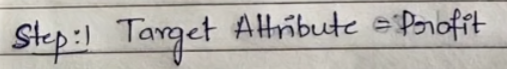 Step:1 Target Attribute = Profit